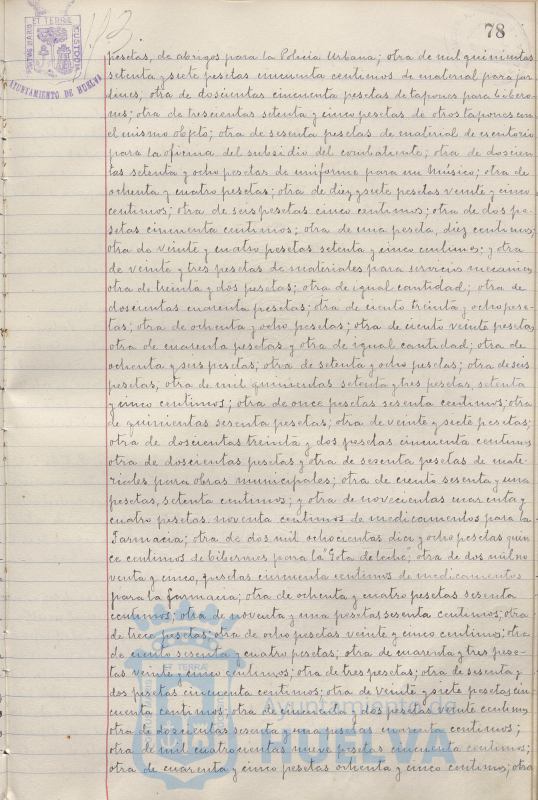 78
113.
PORTUS MARIS ET TERRÆ CUSTODIA
AYUNTAMIENTO DE HUELVA
pesetas, de abrigos para la Policia Urbana; otra de mil quinientas
setenta y siete pesetas cincuenta centimos de material para jar
dines, otra de doscientas cincuenta pesetas de tapones para bibero-
nes; otra de trescientas setenta y cinco pesetas de otros tapones con
el mismo objeto; otra de sesenta pesetas de material de escritorio
para la oficina del subsidio del combatiente; otra de doscien
tas setenta y ocho pesetas de uniforme para un músico; otra de
ochenta y cuatro pesetas; otra de diez y siete pesetas veinte y cinco
centimos; otra de seis pesetas cinco centimos; otra de dos pe-
setas cincuenta centimos; otra de una peseta, diez centimos;
otra de veinte y cuatro pesetas setenta y cinco centimos; y otra
de veinte y tres pesetas de materiales para servicios mecanicos
otra de treinta y dos pesetas; otra de igual cantidad; otra de
doscientas cuarenta pesetas; otra de ciento treinta y ocho pese-
tas; otra de ochenta y ocho pesetas; otra de ciento veinte pesetas,
otra de cuarenta pesetas y otra de igual cantidad; otra de
ochenta y seis pesetas; otra de setenta y ocho pesetas; otra de seis
pesetas; otra de mil quinientas setenta y tres pesetas, setenta
y cinco centimos; otra de once pesetas sesenta centimos; otra
de quinientas sesenta pesetas; otra de veinte y siete pesetas;
otra de doscientas treinta y dos pesetas cincuenta centimos
otra de doscientas pesetas y otra de sesenta pesetas de mate-
riales para obras municipales; otra de ciento sesenta y una
pesetas, setenta centimos; y otra de novecientas cuarenta y
cuatro pesetas noventa centimos de medicamentos para la
Farmacia; otra de dos mil ochocientas diez y ocho pesetas quin
ce centimos de biberones para la "Gota de leche"; otra de dos mil no
venta y cinco, pesetas cincuenta centimos de medicamentos
para la farmacia; otra de ochenta y cuatro pesetas sesenta
centimos; otra de noventa y una pesetas sesenta centimos; otra
de trece pesetas; otra de ocho pesetas veinte y cinco centimos; otra
de ciento sesenta y cuatro pesetas; otra de cuarenta y tres pese-
tas veinte y cinco centimos; otra de tres pesetas; otra de sesenta y
dos pesetas cincuenta centimos; otra de veinte y siete pesetas cin
cuenta centimos; otra de cincuenta y dos pesetas veinte centimos
otra de doscientas sesenta y una pesetas noventa centimos;
otra de mil cuatrocientas nueve pesetas cincuenta centimos;
otra de cuarenta y cinco pesetas ochenta y cinco centimos; otra
Ayuntamiento de
HUELVA